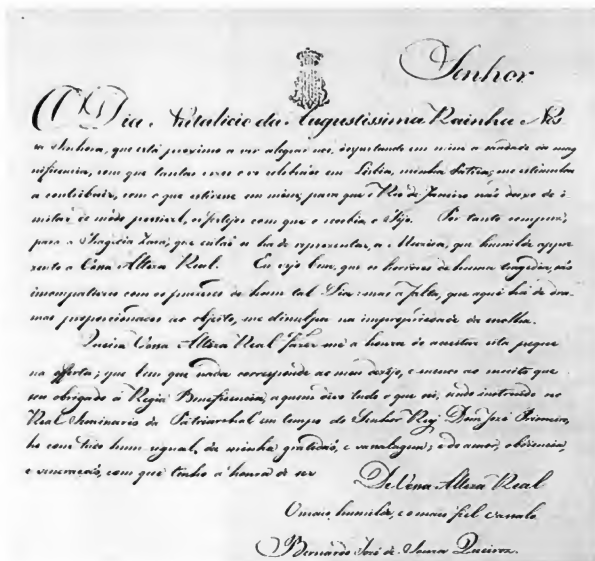 Senhor
O Dia Natalicio da Augustissima Rainha Nos
sa Senhora, que está proximo a vir alegrar nos, despertando em mim a saudade da mag
nificencia, com que tantas vezes o vi celebrar em Lisboa, minha Patria, me estimulou
a contribuir, com o que estivesse em mim, para que o Rio de Janeiro não deixe de i
mitar do modo possivel, os festejos com que o recebia o Tejo. Por tanto compuz,
para a Tragedia Zara, que então se ha de representar, a Muzica, que humilde appre
zento a Vossa Alteza Real. Eu vejo bem, que os horrores de huma tragedia, são
incompativeis com os prazeres de hum tal Dia: mas a falta, que aqui há de dra
mas proporcionados ao objecto, me disculpa na impropriedade da escolha.
Queira Vossa Alteza Real fazer me a honra de acceitar esta peque
na offerta; que bem que nada corresponde ao meu dezejo, e menos ao muito que
sou obrigado á Regia Beneficencia, a quem devo tudo o que sei, sendo instruido no
Real Seminario da Patriarchal em tempo do Senhor Rey Dom José Primeiro,
he com tudo hum signal, da minha gratidão, e vassalagem; e do amor, obediencia,
e veneração, com que tenho a honra de ser
De Vossa Alteza Real
O mais humilde, e o mais fiel vassalo
Bernardo José de Souza Queiroz.